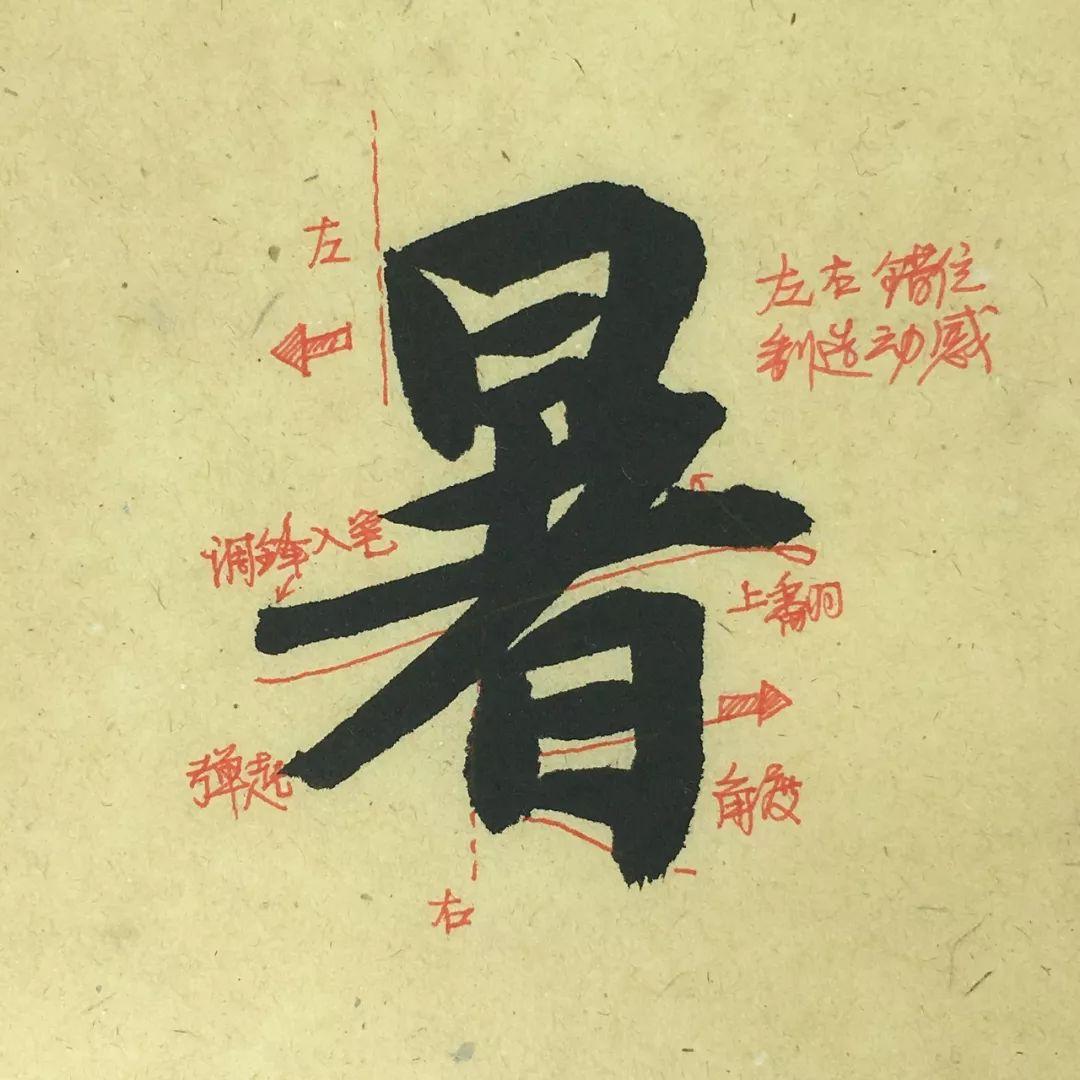 暑
左
左右错位
制造动感
调锋入笔
上翻
弹起
角度
右